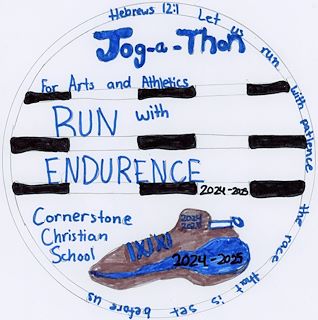 Hebrews 12:1 Let us run with patience the race that is set before us
Jog-a-Thon
For Arts and Athletics
RUN with
ENDURENCE
2024-2025
Cornerstone
Christian
School
2024
2025
2024-2025